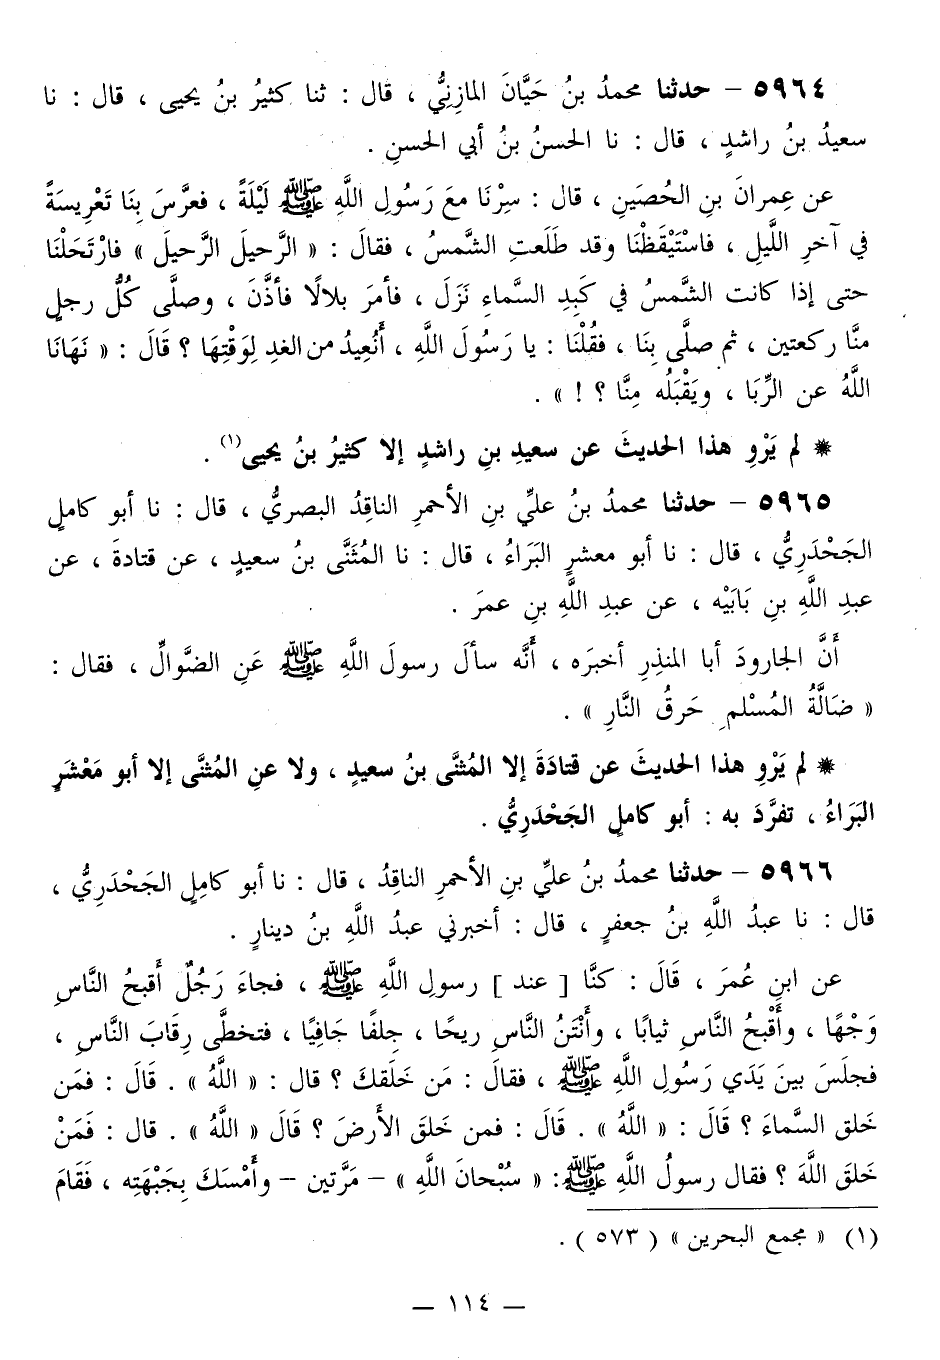 ٥٩٦٤ – حدثنا محمدُ بنُ حَيَّانَ المازِنِيُّ ، قال : ثنا كثيرُ بنُ يحيى ، قال : نا
سعيدُ بنُ راشدٍ ، قال : نا الحسنُ بنُ أبي الحسنِ .
عن عِمرانَ بنِ الحُصَينِ ، قال : سِرْنَا معَ رَسُولِ اللَّهِ ﷺ لَيْلَةً ، فعرَّسَ بِنَا تَعْرِيسَةً
في آخرِ اللَّيلِ ، فاسْتَيْقَظْنَا وقد طَلَعتِ الشَّمسُ ، فقالَ : « الرَّحيلَ الرَّحيلَ » فارْتَحَلْنَا
حتى إذا كانت الشَّمسُ في كَبِدِ السَّماءِ نَزَلَ ، فأمرَ بلالًا فأذَّنَ ، وصلَّى كُلُّ رجلٍ
منَّا ركعتين ، ثم صلَّى بِنَا ، فقُلْنَا : يا رَسُولَ اللَّهِ ، أَنُعِيدُ من الغدِ لِوَقْتِهَا ؟ قَالَ : « نَهَانَا
اللَّهُ عن الرِّبَا ، ويَقْبَلُه مِنَّا ؟ ! » .
* لم يَرْوِ هذا الحديثَ عن سعيدِ بنِ راشدٍ إلا كثيرُ بنُ يحيى(١) .
٥٩٦٥ – حدثنا محمدُ بنُ عليِّ بنِ الأحمرِ الناقِدُ البصريُّ ، قال : نا أبو كاملٍ
الجَحْدَرِيُّ ، قال : نا أبو معشرٍ البَرَاءُ ، قال : نا المُثَنَّى بنُ سعيدٍ ، عن قتادةَ ، عن
عبدِ اللَّهِ بنِ بَابَيْه ، عن عبدِ اللَّهِ بنِ عمرَ .
أنَّ الجارودَ أبا المنذِرِ أخبرَه ، أنَّه سألَ رسولَ اللَّهِ ﷺ عَنِ الضَّوالِّ ، فقال :
« ضَالَّةُ المُسْلمِ حَرقُ النَّارِ » .
* لم يَرْوِ هذا الحديثَ عن قتادَةَ إلا المُثنَّى بنُ سعيدٍ ، ولا عنِ المُثنَّى إلا أبو مَعْشَرٍ
البَرَاءُ ، تفرَّدَ به : أبو كاملٍ الجَحْدَرِيُّ .
٥٩٦٦ – حدثنا محمدُ بنُ عليِّ بنِ الأحمرِ الناقِدُ ، قال : نا أبو كامِلٍ الجَحْدَرِيُّ ،
قال : نا عبدُ اللَّهِ بنُ جعفرٍ ، قال : أخبرني عبدُ اللَّهِ بنُ دينارٍ .
عن ابنِ عُمرَ ، قَالَ : كنَّا [ عند ] رسولِ اللَّهِ ﷺ ، فجاءَ رَجُلٌ أَقبحُ النَّاسِ
وَجْهًا ، وأَقْبحُ النَّاسِ ثيابًا ، وأَنْتَنُ النَّاسِ ريحًا ، جِلفًا جَافِيًا ، فتخطَّى رِقَابَ النَّاسِ ،
فجلَسَ بينَ يَدَي رَسُولِ اللَّهِ ﷺ ، فقالَ : مَن خَلَقكَ ؟ قال : « اللَّهُ » . قَالَ : فمَن
خَلق السَّماءَ ؟ قَالَ : « اللَّهُ » . قَالَ : فمن خَلقَ الأَرضَ ؟ قَالَ « اللَّهُ » . قال : فَمَنْ
خَلقَ اللَّهَ ؟ فقال رسولُ اللَّهِ ﷺ: « سُبْحانَ اللَّهِ » – مَرَّتين – وأَمْسَكَ بِجَبْهَتِه ، فَقَامَ
(١) « مجمع البحرين » ( ٥٧٣ ) .
— ١١٤ —